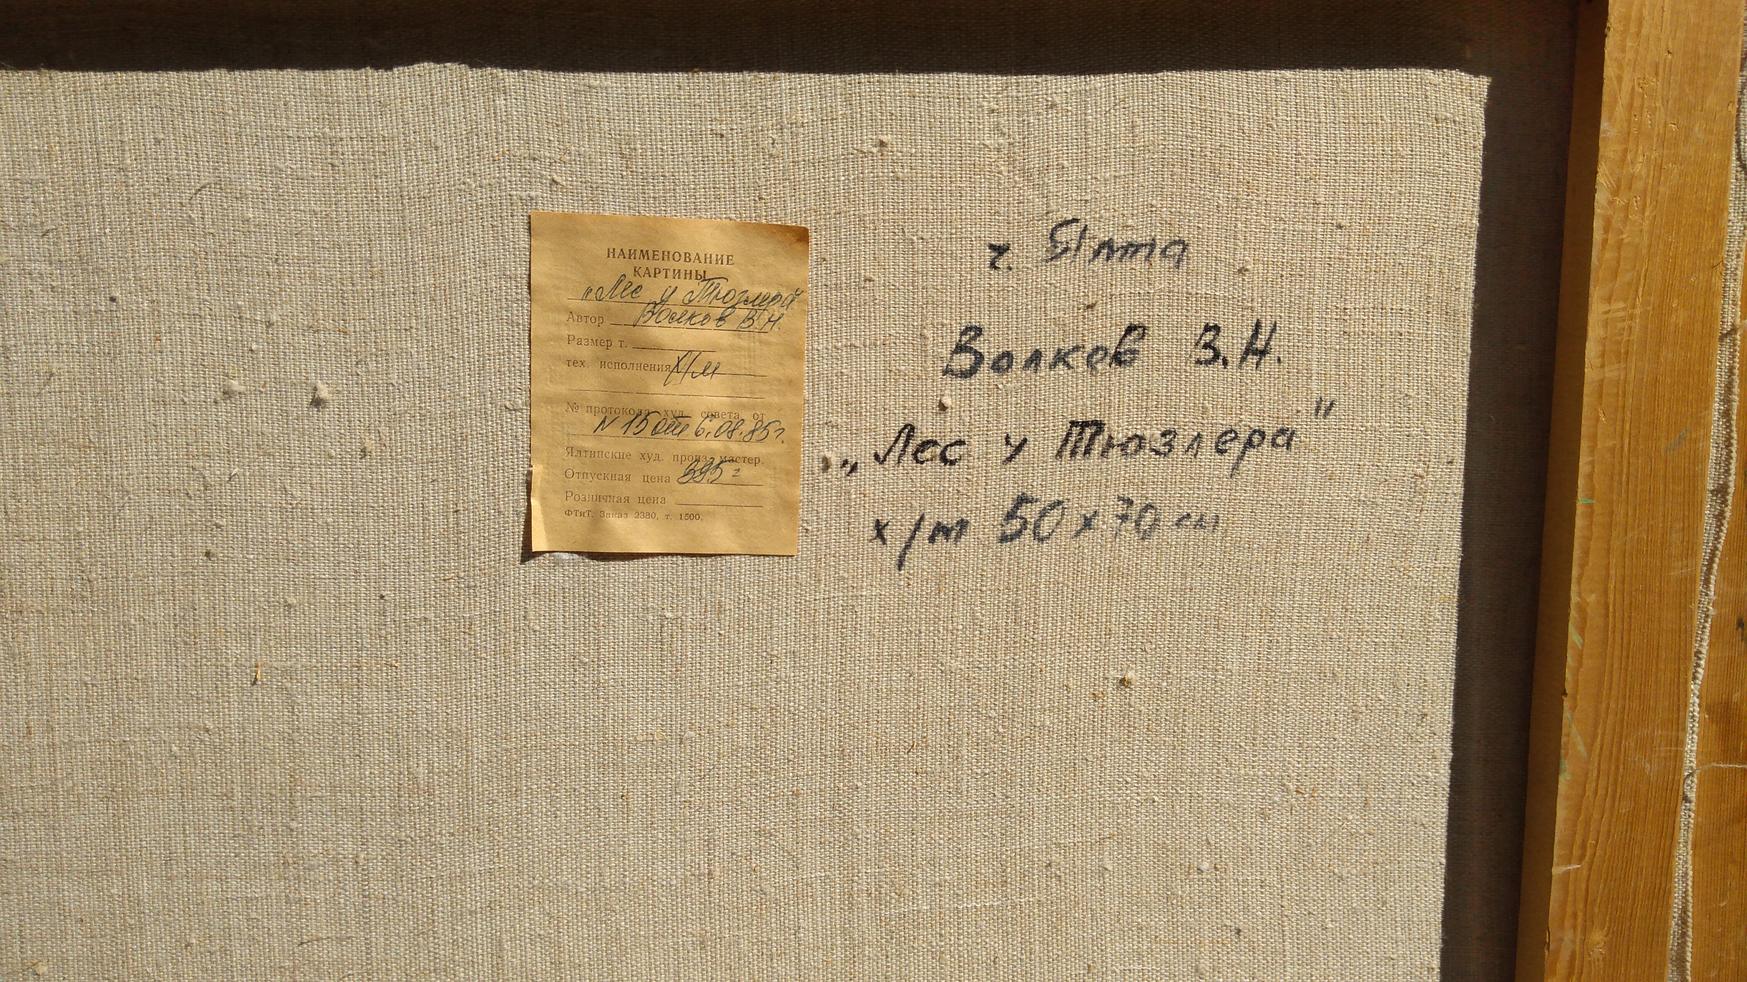 НАИМЕНОВАНИЕ
КАРТИНЫ
„Лес у Тюзлера"
Автор Волков В.Н.
Размер т.
тех. исполнения х/м
№ протокола худ. совета от
N 15 от 6.08.85г.
Ялтинские худ. произ. мастер.
Отпускная цена 395=
Розничная цена
ФТиТ. Заказ 2380, т. 1500.
г. Ялта
Волков В.Н.
„Лес у Тюзлера"
х/т 50х70 см